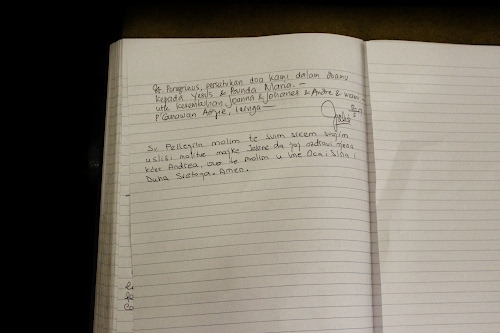 St. Peregrinus, persatukan doa kami dalam doamu
kepada Yesus & Bunda Maria. —
utk kesembuhan Joanna & Johanes & Andre &
P' Gunawan
Sv. Pellegrin molim te svim srcem svojim
uslisi molitve majke Jelene da joj ozdravi njena
kćer Andrea, ovo te molim u ime Oca i Sina i
Duha Svetoga. Amen.